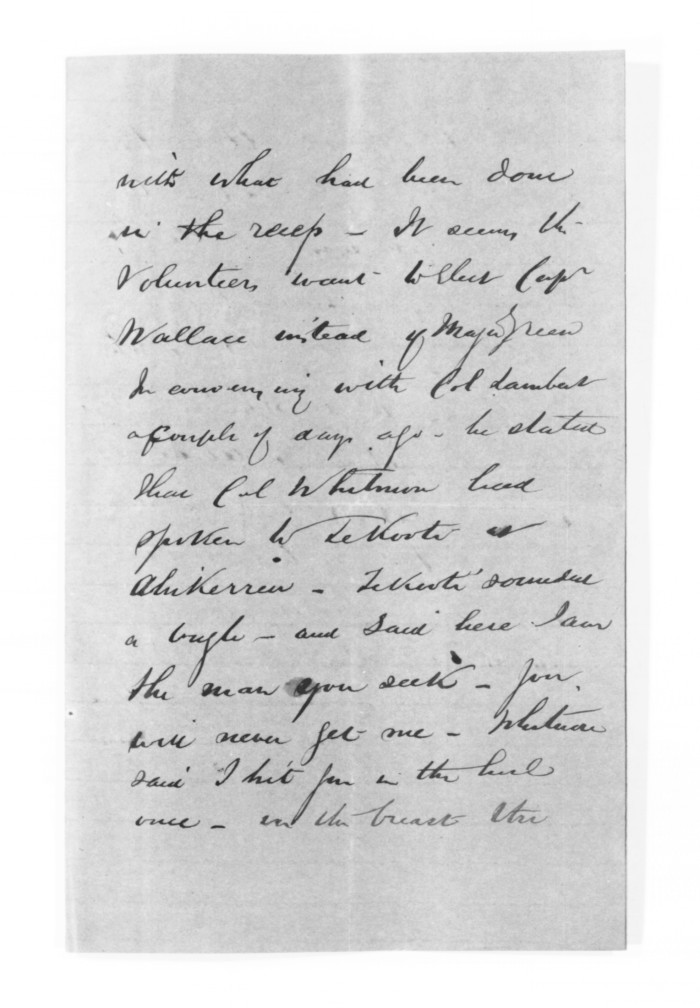 with what had been done
in the - It seems the
Volunteers want to Elect Capt
Wallace instead of Major Green
In conversing with Col Lambert
a couple of days ago - he stated
that Col Whitmore had
spoken to Te Kooti at
Ahikerriru - Te Kooti sounded
a bugle - and said here I am
the man you seek - you
will never get me - Whitmore
said I hit you in the heel
once - in the breast the